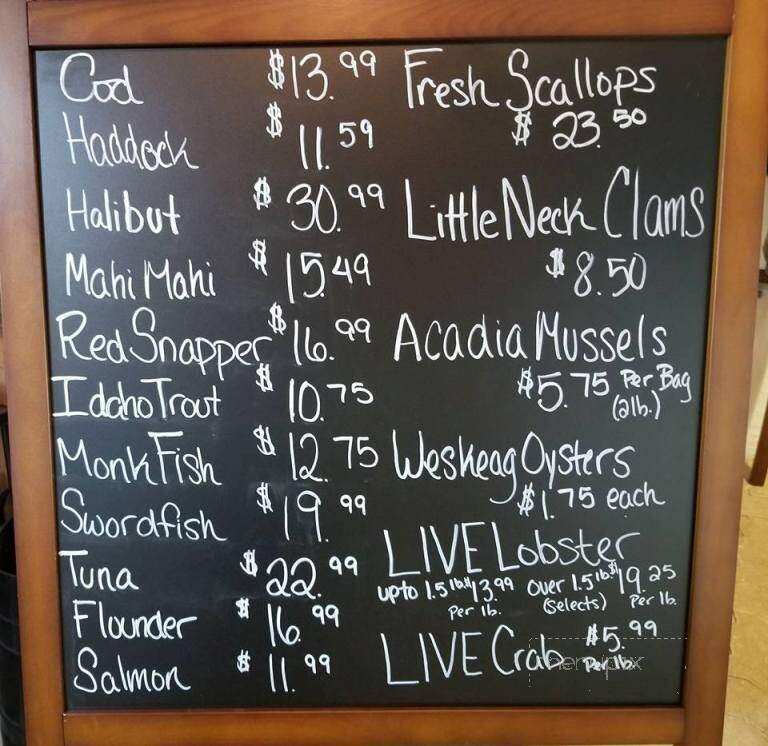 Cod $13.99
Haddock $11.59
Halibut $30.99
Mahi Mahi $15.49
Red Snapper $16.99
Idaho Trout $10.75
Monk Fish $12.75
Swordfish $19.99
Tuna $22.99
Flounder $16.99
Salmon $11.99
Fresh Scallops
$23.50
Little Neck Clams
$8.50
Acadia Mussels
$5.75 Per Bag
(2lb.)
Weskeag Oysters
$1.75 each
LIVE Lobster
upto 1.5 lb. $13.99 over 1.5 lb. $19.25
Per lb. (Selects) Per lb.
LIVE Crab $5.99
Per lb.